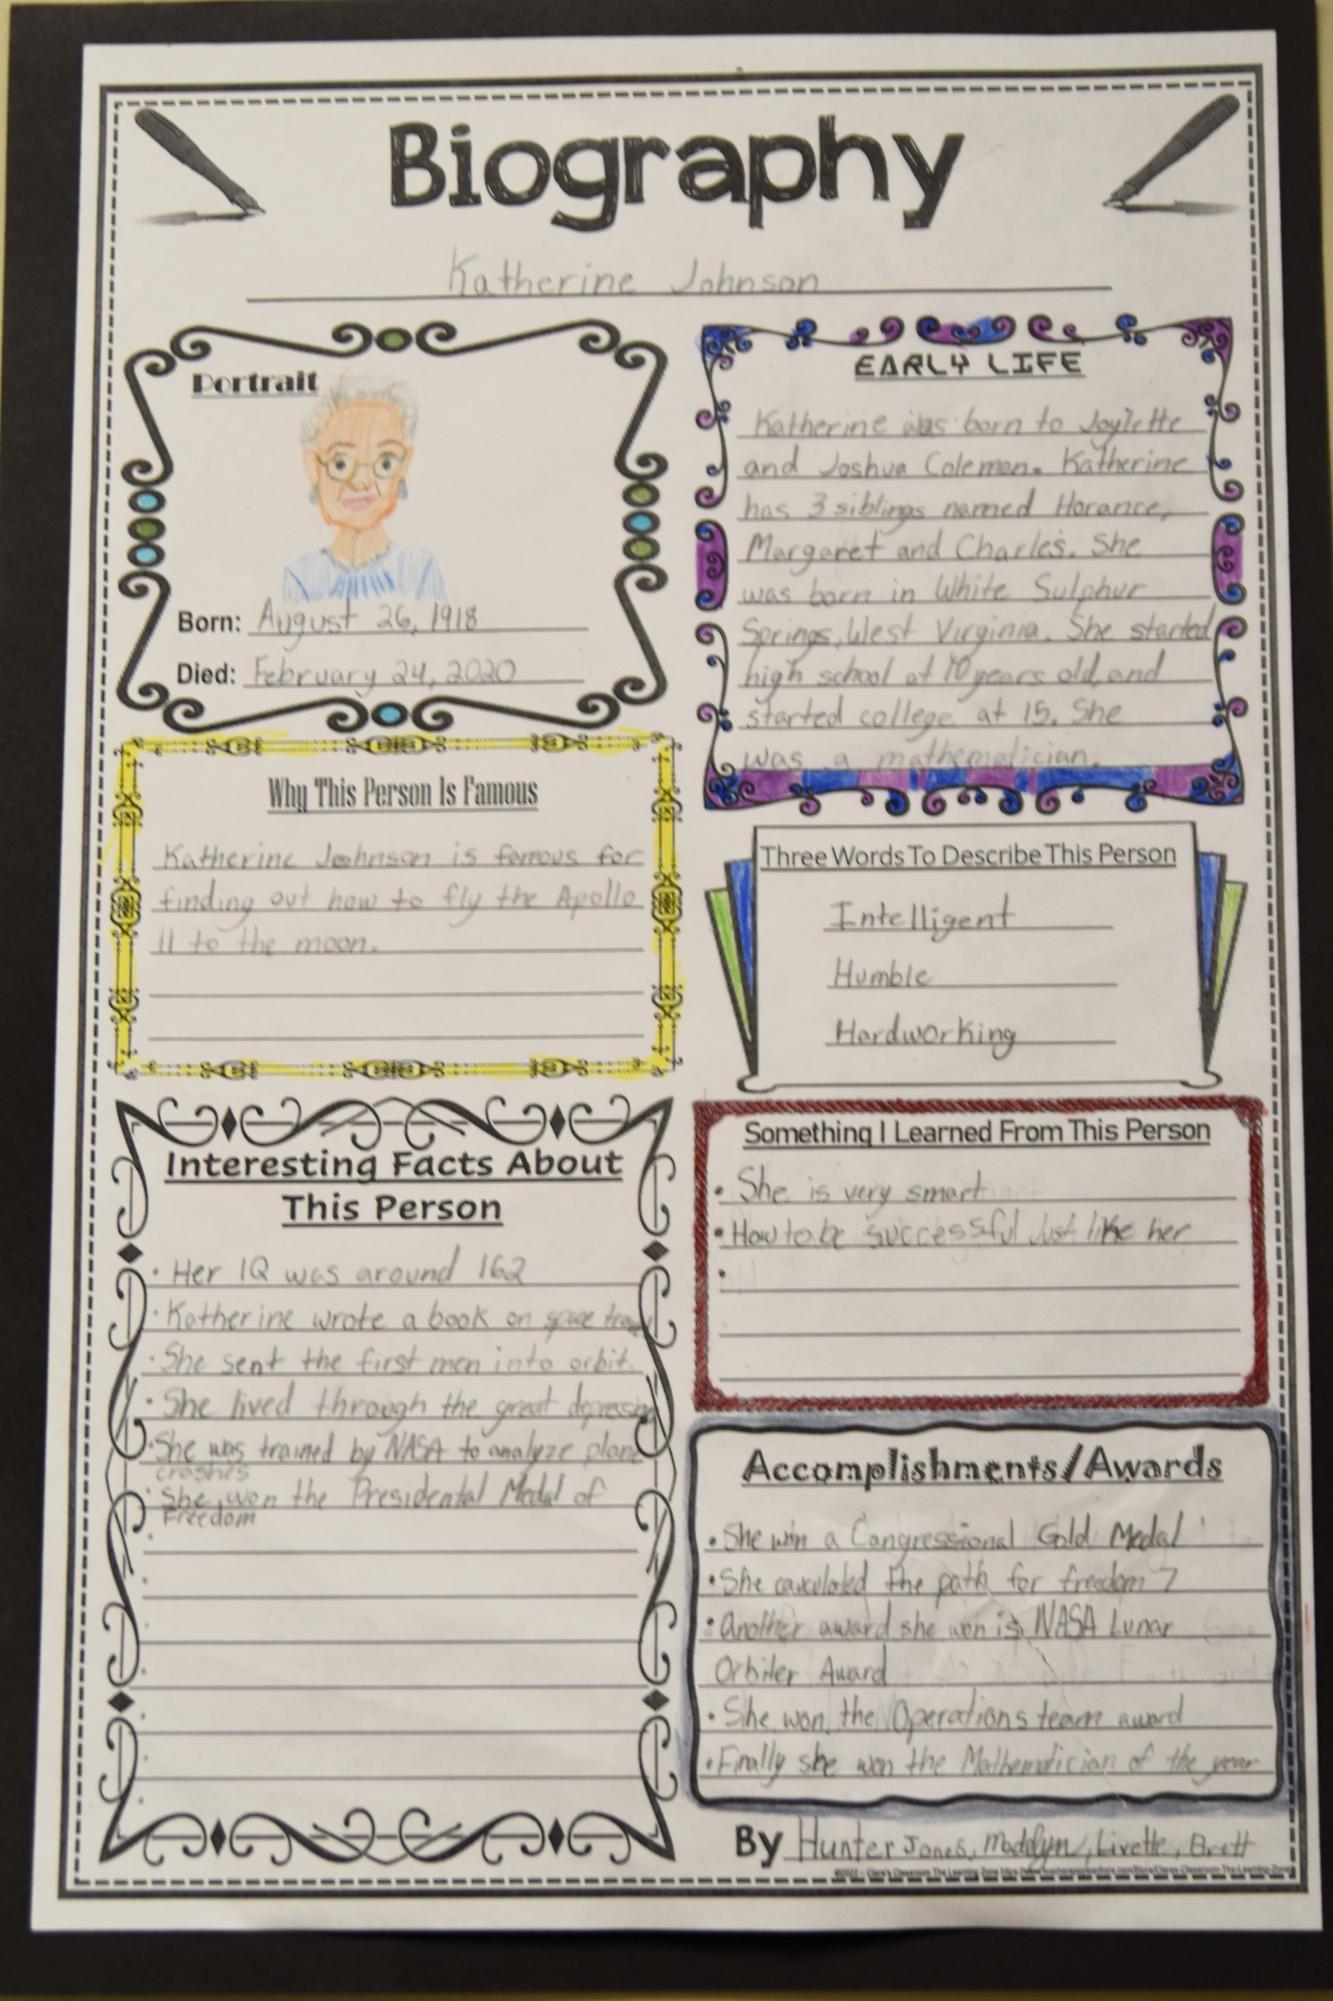 Biography
Katherine Johnson
Portrait
Born: August 26, 1918
Died: February 24, 2020
EARLY LIFE
Katherine was born to Joylette
and Joshua Coleman. Katherine
has 3 siblings named Horance,
Margaret and Charles. She
was born in White Sulphur
Springs, West Virginia. She started
high school at 10 years old, and
started college at 15. She
was a mathematician.
Why This Person Is Famous
Katherine Johnson is famous for
finding out how to fly the Apollo
11 to the moon.
Three Words To Describe This Person
Intelligent
Humble
Hardworking
Interesting Facts About
This Person
• Her IQ was around 162
• Katherine wrote a book on space travel
• She sent the first men into orbit.
• She lived through the great depression
• She was trained by NASA to analyze plane
crashes
• She won the Presidental Medal of
Freedom
Something I Learned From This Person
• She is very smart
• How to be successful Just like her
•
Accomplishments/Awards
• She win a Congressional Gold Medal
• She calculated the path for freedom 7
• Another award she won is NASA Lunar
Orbiter Award
• She won the Operations team award
• Finally she won the Mathematician of the year
By Hunter Jones, Madelyn, Livette, Brett